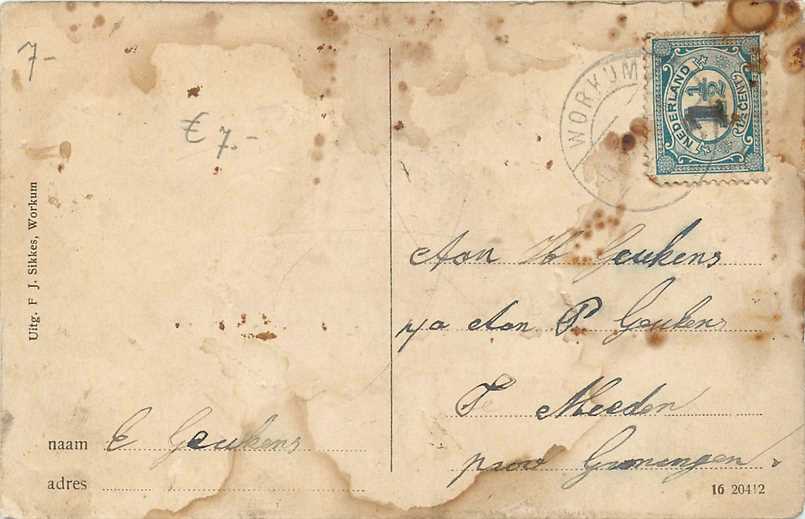 7-
€ 7.-
Uitg. F J. Sikkes, Workum
WORKUM
NEDERLAND
1½
1½ CENT
Aan H Geukens
p/a Aan P Geukens
Te Meeden
prov Groningen
naam E Geukens
adres
16 20412